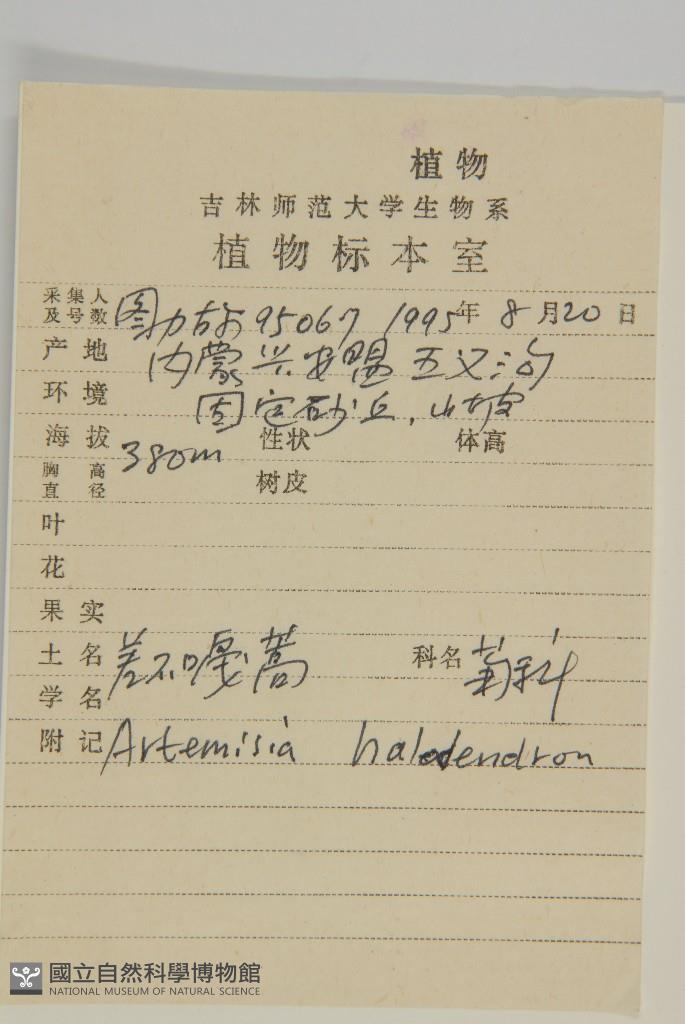 植物
吉林师范大学生物系
植物标本室
采集人及号数 图力古尔 95067 1995年 8月20日
产地 内蒙兴安盟五叉沟
环境 固定砂丘，山坡
海拔 380m 性状 体高
胸高直径 树皮
叶
花
果实
土名 差不嘎蒿 科名 菊科
学名
附记 Artemisia halodendron
國立自然科學博物館
NATIONAL MUSEUM OF NATURAL SCIENCE